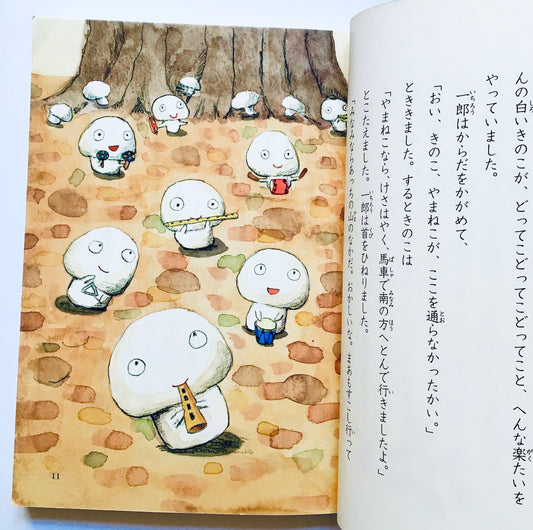 んの白いきのこが、どってこどってこどってこと、へんな楽たいを
やっていました。
一郎はからだをかがめて、
「おい、きのこ、やまねこが、ここを通らなかったかい。」
とききました。するときのこは
「やまねこなら、けさはやく、馬車で南の方へとんで行きましたよ。」
とこたえました。一郎は首をひねりました。
「みなみならあっちの山のなかだ。おかしいな。まあもすこし行って
11